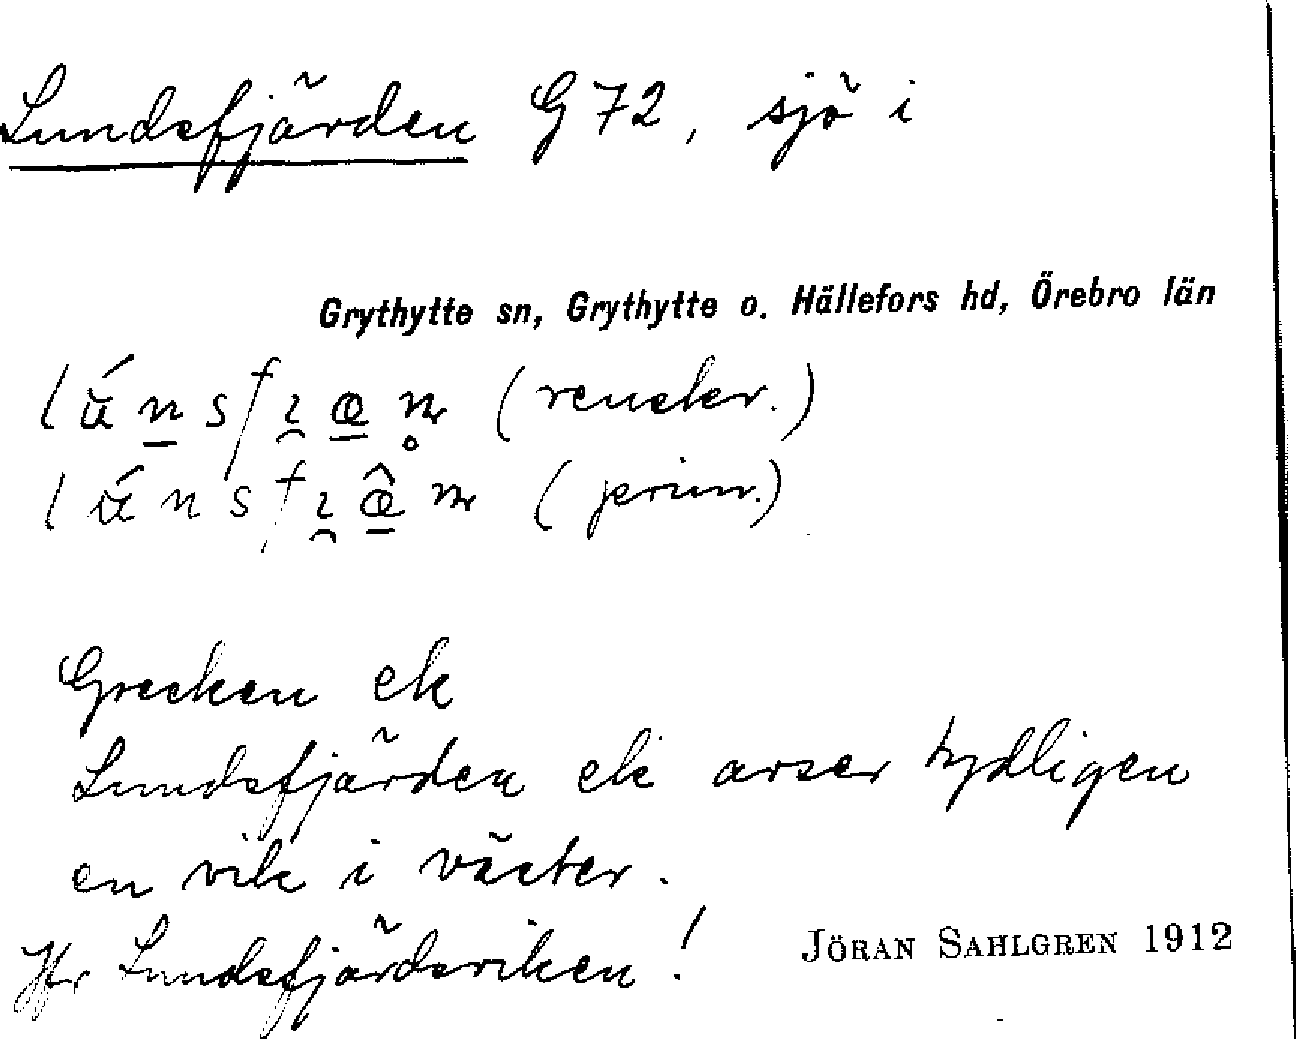 Lundsfjärden G 72, sjö i
Grythytte sn, Grythytte o. Hällefors hd, Örebro län
(renskr.)
(prim.)
Grecken ek
Lundsfjärden ek avser tydligen
en vik i väster.
Jfr Lundsfjärdsviken!
JÖRAN SAHLGREN 1912